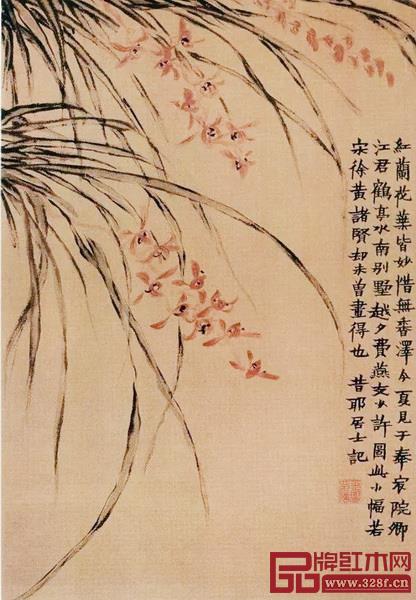 紅蘭花葉皆妙惜無香澤今夏見于奉宸院卿
江君鶴亭水南別墅越夕費燕支少許圖此小幅若
宋徐黃諸賢却未曾畫得也 昔耶居士記
品牌红木网
www.328f.cn